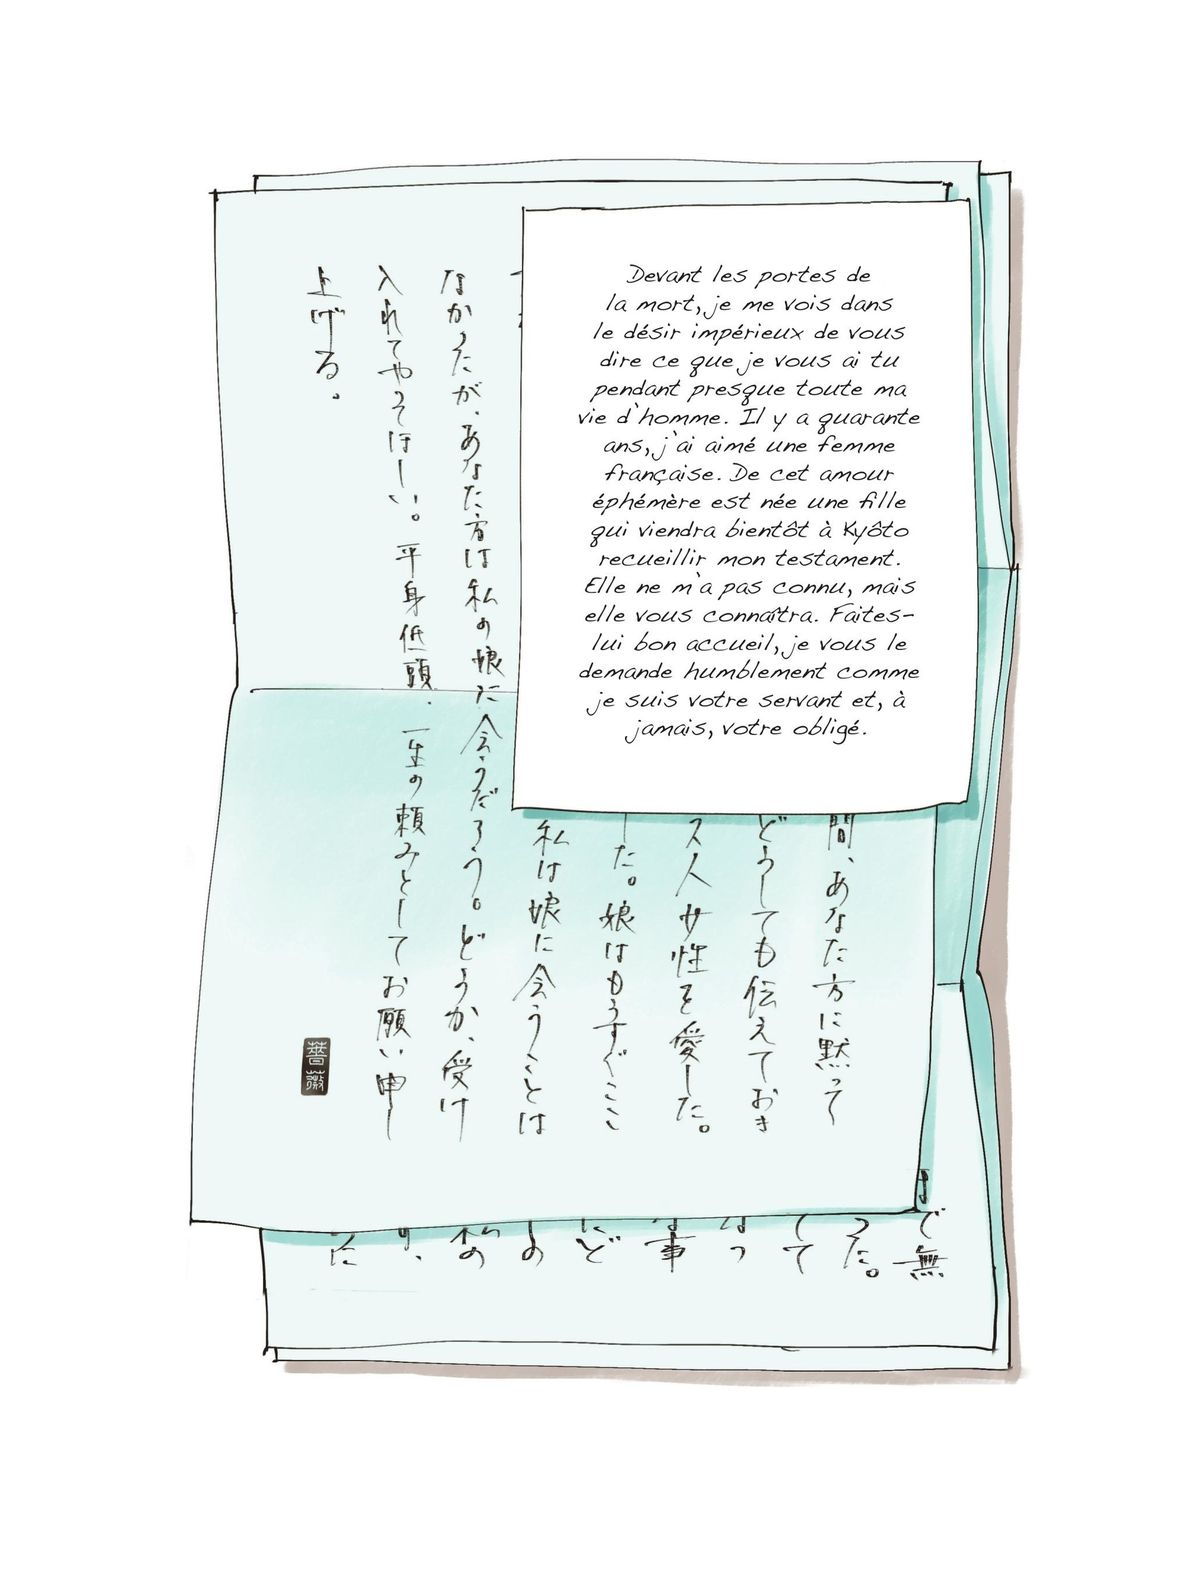 Devant les portes de
la mort, je me vois dans
le désir impérieux de vous
dire ce que je vous ai tu
pendant presque toute ma
vie d'homme. Il y a quarante
ans, j'ai aimé une femme
française. De cet amour
éphémère est née une fille
qui viendra bientôt à Kyôto
recueillir mon testament.
Elle ne m'a pas connu, mais
elle vous connaîtra. Faites-
lui bon accueil, je vous le
demande humblement comme
je suis votre servant et, à
jamais, votre obligé.
間、あなた方に黙って
どうしても伝えておき
ス人女性を愛した。
した。娘はもうすぐここ
私は娘に会うことは
なかったが、あなた方は私の娘に会うだろう。どうか、受け
入れてやってほしい。平身低頭、一生の頼みとしてお願い申し
上げる。
薔薇
で無
った。
して
なっ
事
にど
の
私の
た